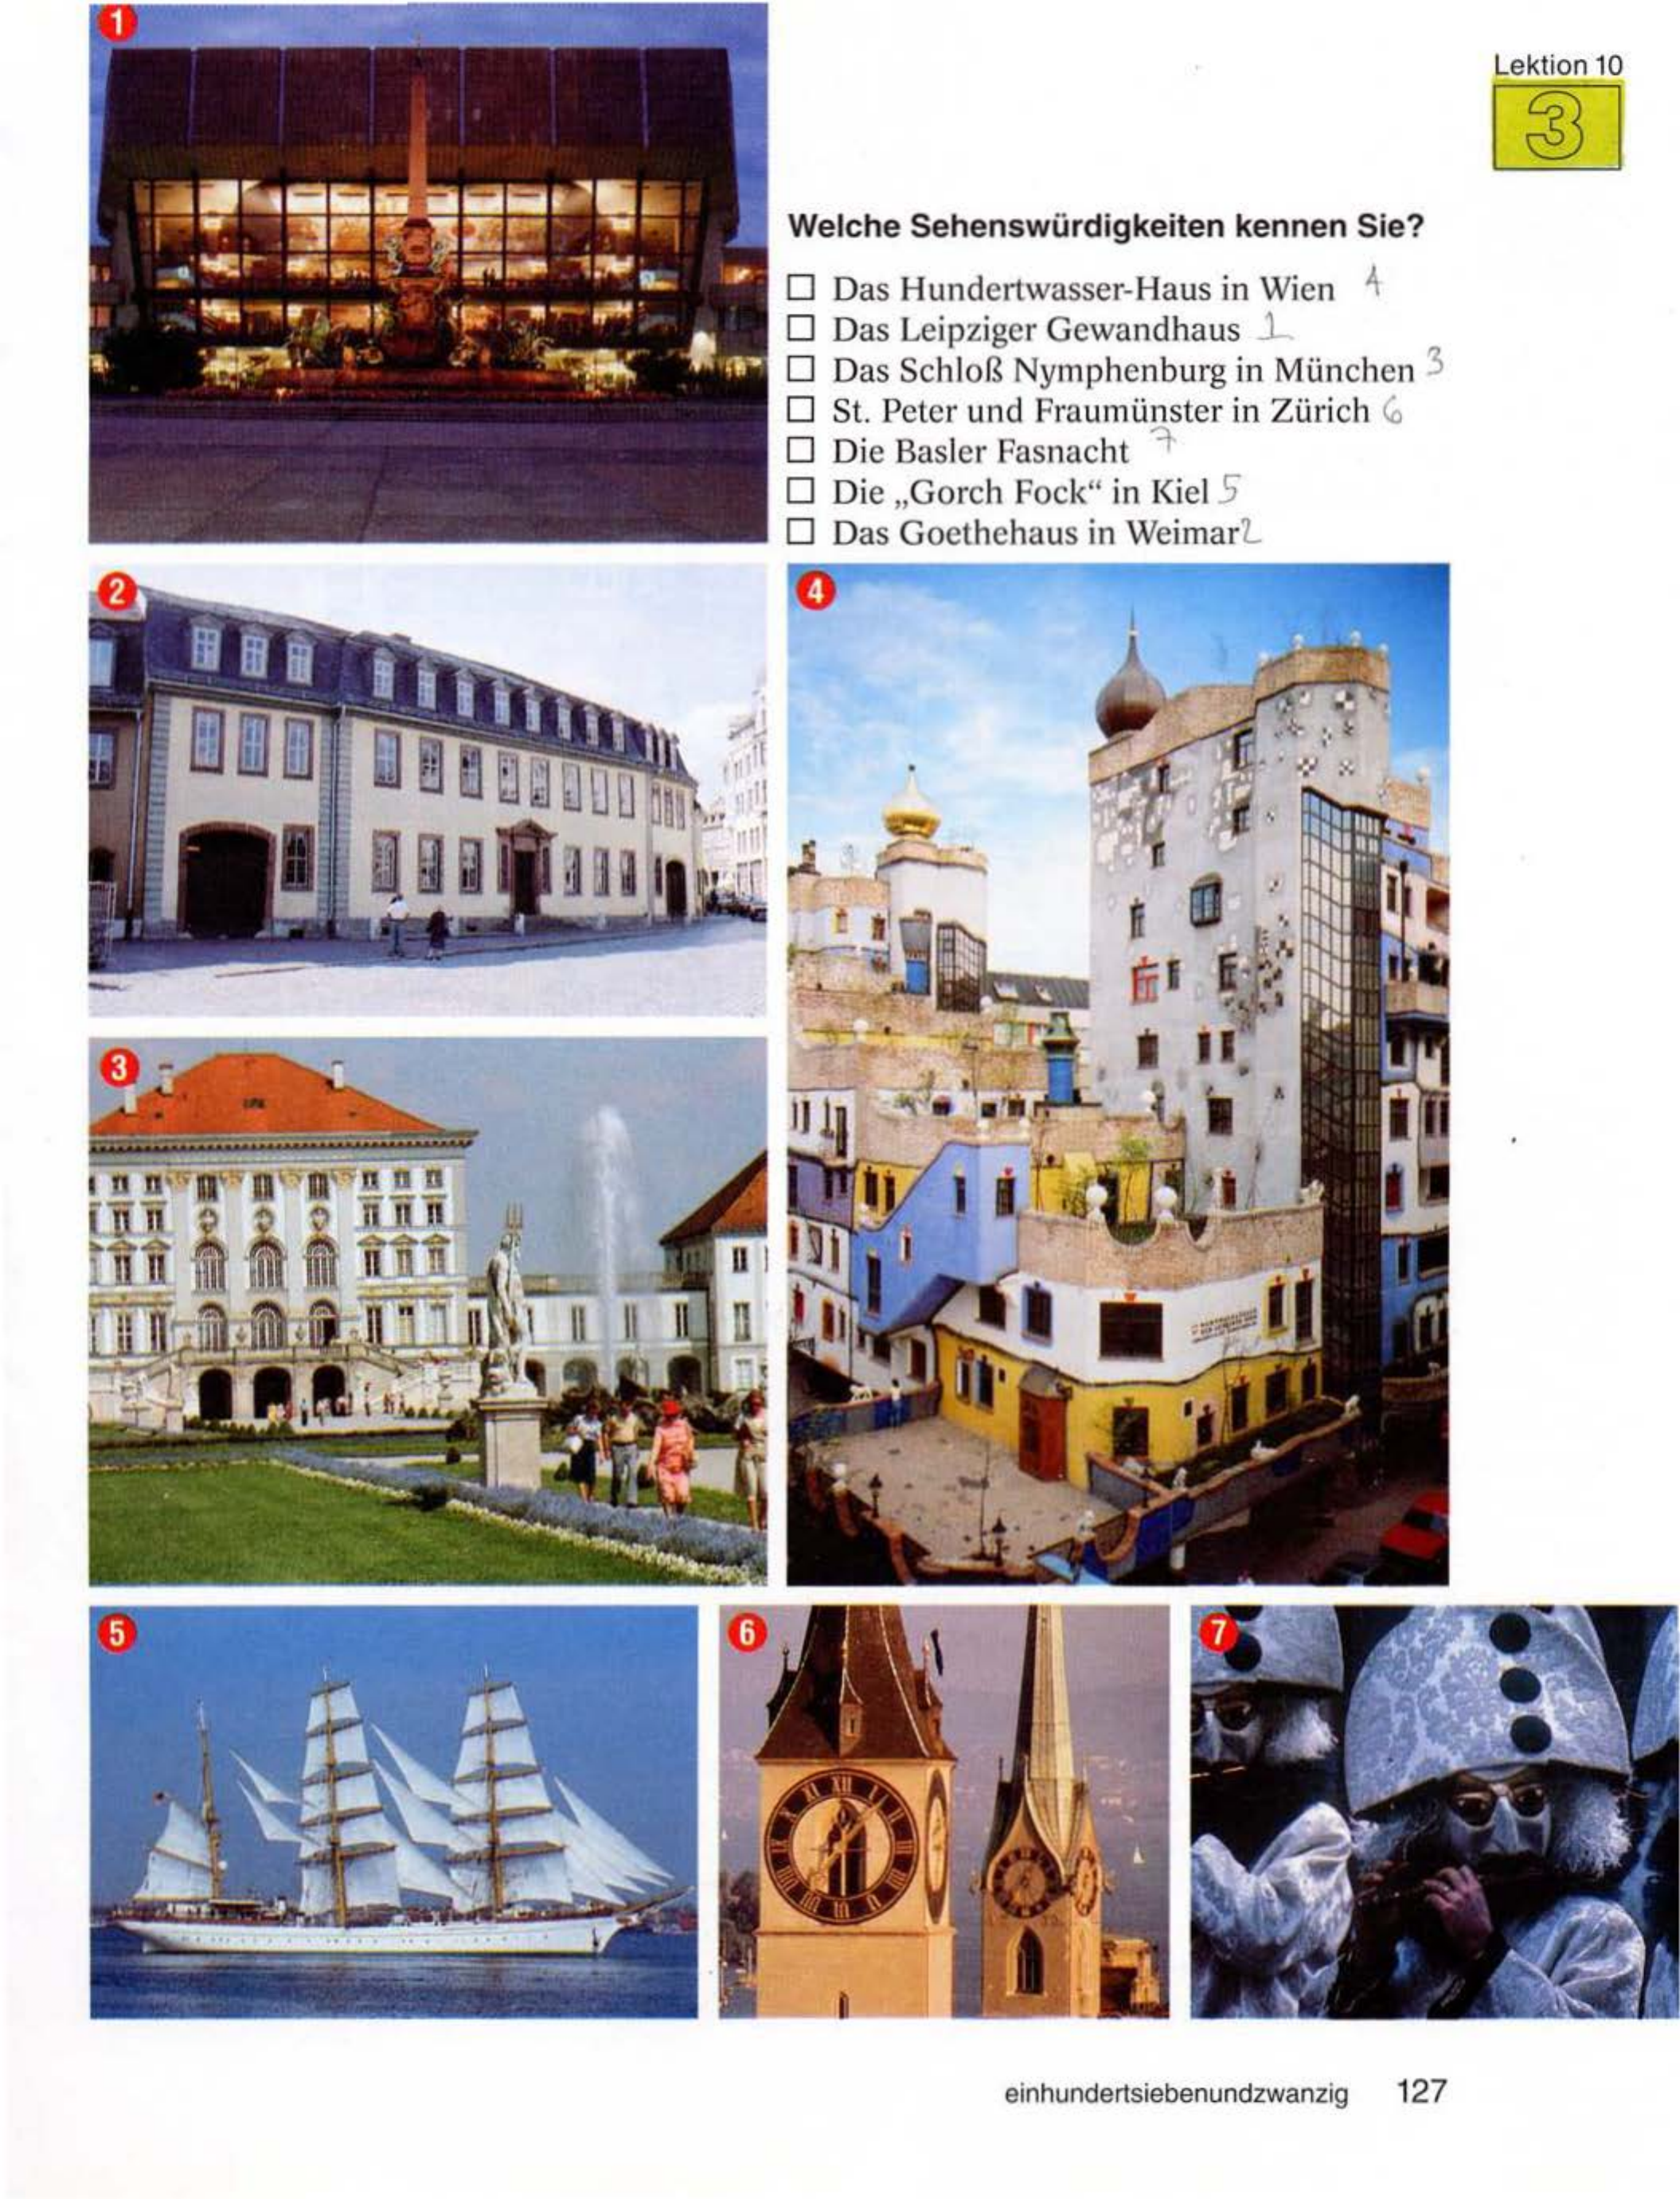 1
Lektion 10
3
Welche Sehenswürdigkeiten kennen Sie?
☐ Das Hundertwasser-Haus in Wien 4
☐ Das Leipziger Gewandhaus 1
☐ Das Schloß Nymphenburg in München 3
☐ St. Peter und Fraumünster in Zürich 6
☐ Die Basler Fasnacht 7
☐ Die „Gorch Fock“ in Kiel 5
☐ Das Goethehaus in Weimar 2
2
4
3
5
6
7
einhundertsiebenundzwanzig 127